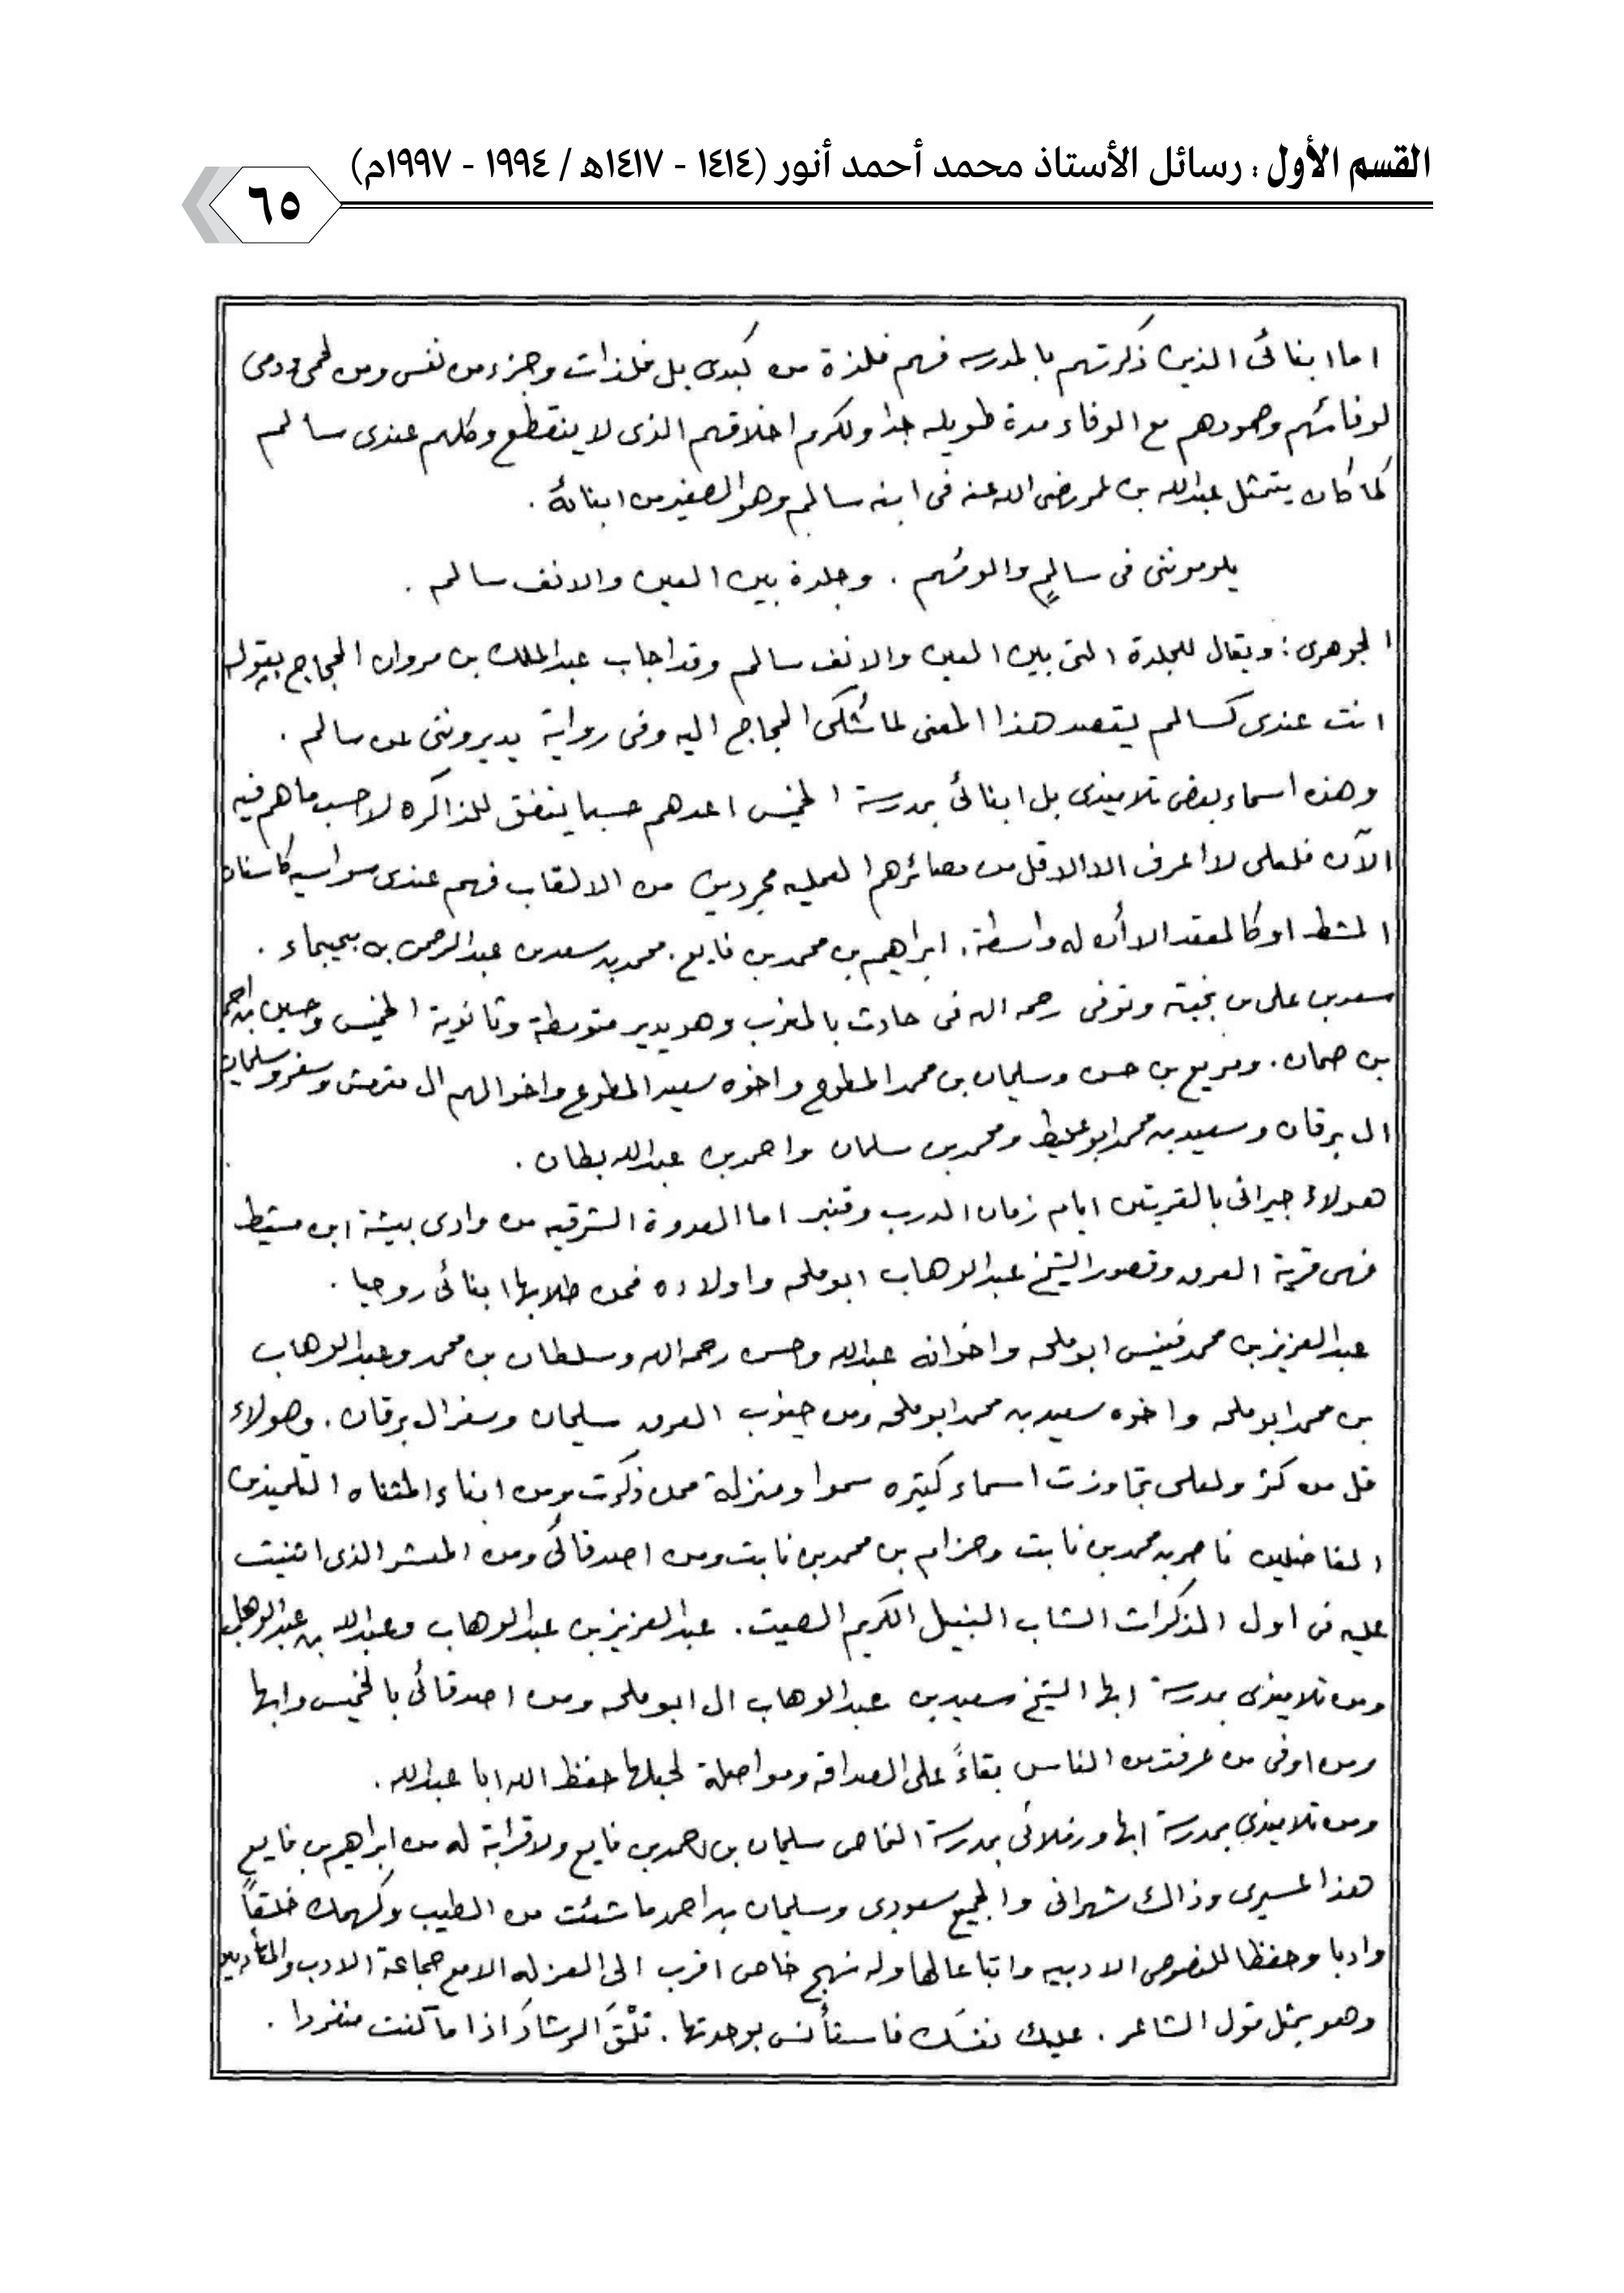 القسم الأول : رسائل الأستاذ محمد أحمد أنور (١٤١٤ - ١٤١٧هـ / ١٩٩٤ - ١٩٩٧م)
٦٥
اما ابنائى الذين ذكرتهم بالمدرسه فهم فلذة من كبدى بل فلذات وجزء من نفسى ومن لحمى ودمى
لوفائهم وصمودهم مع الوفاء مدة طويله جدا ولكرم اخلاقهم الذى لا ينقطع وكلهم عندى سالم
كما كان يتمثل عبدالله بن عمر رضى الله عنه فى ابنه سالم وهو الصغير من ابنائه .
يلوموننى فى سالمٍ والومهم . وجلدة بين العين والانف سالم .
الجوهرى : ويقال للجلدة التى بين العين والانف سالم وقد اجاب عبدالملك بن مروان الحجاج بقوله
انت عندى كسالم يقصد هذا المعنى لما شُكى الحجاج اليه وفى رواية يديروننى عن سالم .
وهذه اسماء بعض تلاميذى بل ابنائى بمدرسة الخميس اعدهم حسبما يتفق للذاكره لا حسب ما هم فيه
الآن فلعلى لا اعرف الا الاقل من مصائرهم العمليه مجردين من الالقاب فهم عندى سواسيه كاسنان
المشط او كالعقد الا أن له واسطة . ابراهيم بن محمد بن فايع . محمد بن سعد بن عبدالرحمن بن بجيجاء .
سعد بن على بن بخيته وتوفى رحمه الله فى حادث بالمغرب وهو يدير متوسطة وثانوية الخميس وحسين بن احمد
بن صمان . ومريع بن حسن وسليمان بن محمد المطوع واخوه سعيد المطوع واخوالهم ال وسفر وسليمان
ال برقان وسعيد بن محمد ابو ومحمد بن سلمان واحمد بن عبدالله بطان .
هولاء جيرانى بالقريتين ايام زمان الدرب وقنبر اما العدوة الشرقيه من وادى بيشة ابن مشيط
فهى قرية العرق وقصور الشيخ عبدالوهاب ابوملحه واولاده فمن طلابها ابنائى روحيا .
عبدالعزيز بن محمد ابوملحه واخوانه عبدالله وحسن رحمه الله وسلطان بن محمد وعبدالوهاب
بن محمد ابوملحه واخوه سعيد بن محمد ابوملحه ومن جنوب العرق سليمان وسفر ال برقان . وهولاء
قل من كثر ولعلى تجاوزت اسماء كثيره سموا ومنزلة ممن ذكرت ومن ابناء المثناه التلميذين
الفاضلين ناصر بن محمد بن نابت وحزام بن محمد بن نابت ومن اصدقائى ومن المعشر الذى اثنيت
عليه فى اول المذكرات الشاب النبيل الكريم الصيت . عبدالعزيز بن عبدالوهاب وعبدالله بن عبدالوهاب
ومن تلاميذى بمدرسة ابها الشيخ سعيد بن عبدالوهاب ال ابوملحه ومن اصدقائى بالخميس وابها
ومن اوفى من عرفت من الناس بقاءً على الصداقه ومواصلة لحبلها حفظ الله ابا عبدالله .
ومن تلاميذى بمدرسة ابها وزملائى بمدرسة النماص سليمان بن احمد بن فايع ولا قرابة له من ابراهيم بن فايع
هذا عسيرى وذاك شهرانى والجميع سعودى وسليمان بن احمد ما شئت من الطيب وكهمك خلقاً
وادبا وحفظا للنصوص الادبيه واتباعا لها وله نهج خاص اقرب الى العزله الا مع جماعة الادب والمتأدبين
وهو يمثل قول الشاعر . عليك نفسَك فاستأنس بوحدتها . تلْقَ الرشادَ اذا ما كنت منفردا .